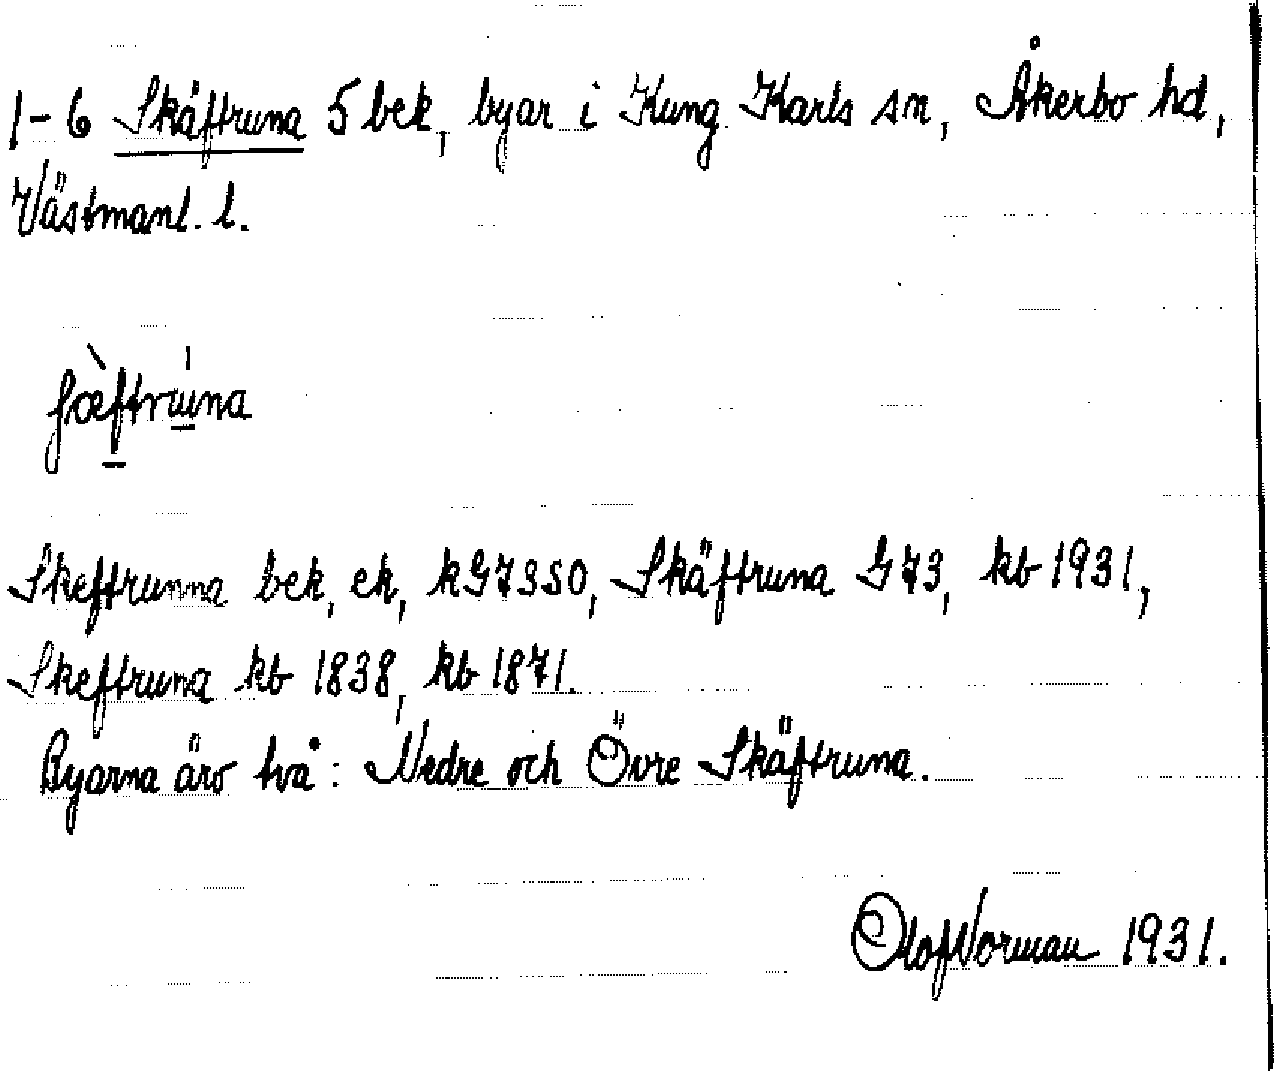 1-6 Skäftruna 5 bek, byar i Kung Karls sn, Åkerbo hd,
Västmanl. l.
ʃæ̀ftrúna
Skeftrunna bek, ek, kG73SO, Skäftruna G73, kb 1931,
Skeftruna kb 1838, kb 1871.
Byarna äro två: Nedre och Övre Skäftruna.
Olof Norman 1931.